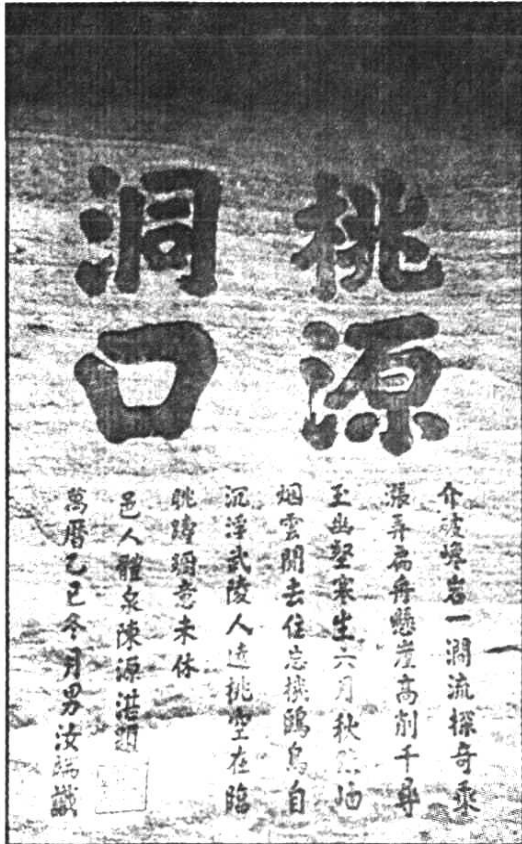 桃源
洞口
介破岩一澗流探奇乘
漲弄扁舟懸崖高削千尋
玉幽壑寒生六月秋點岫
烟雲閒去住忘機鷗鳥自
沉浮武陵人遠桃空在臨
眺躊意未休
邑人體泉陳源湛題
萬曆乙巳冬月男汝端識